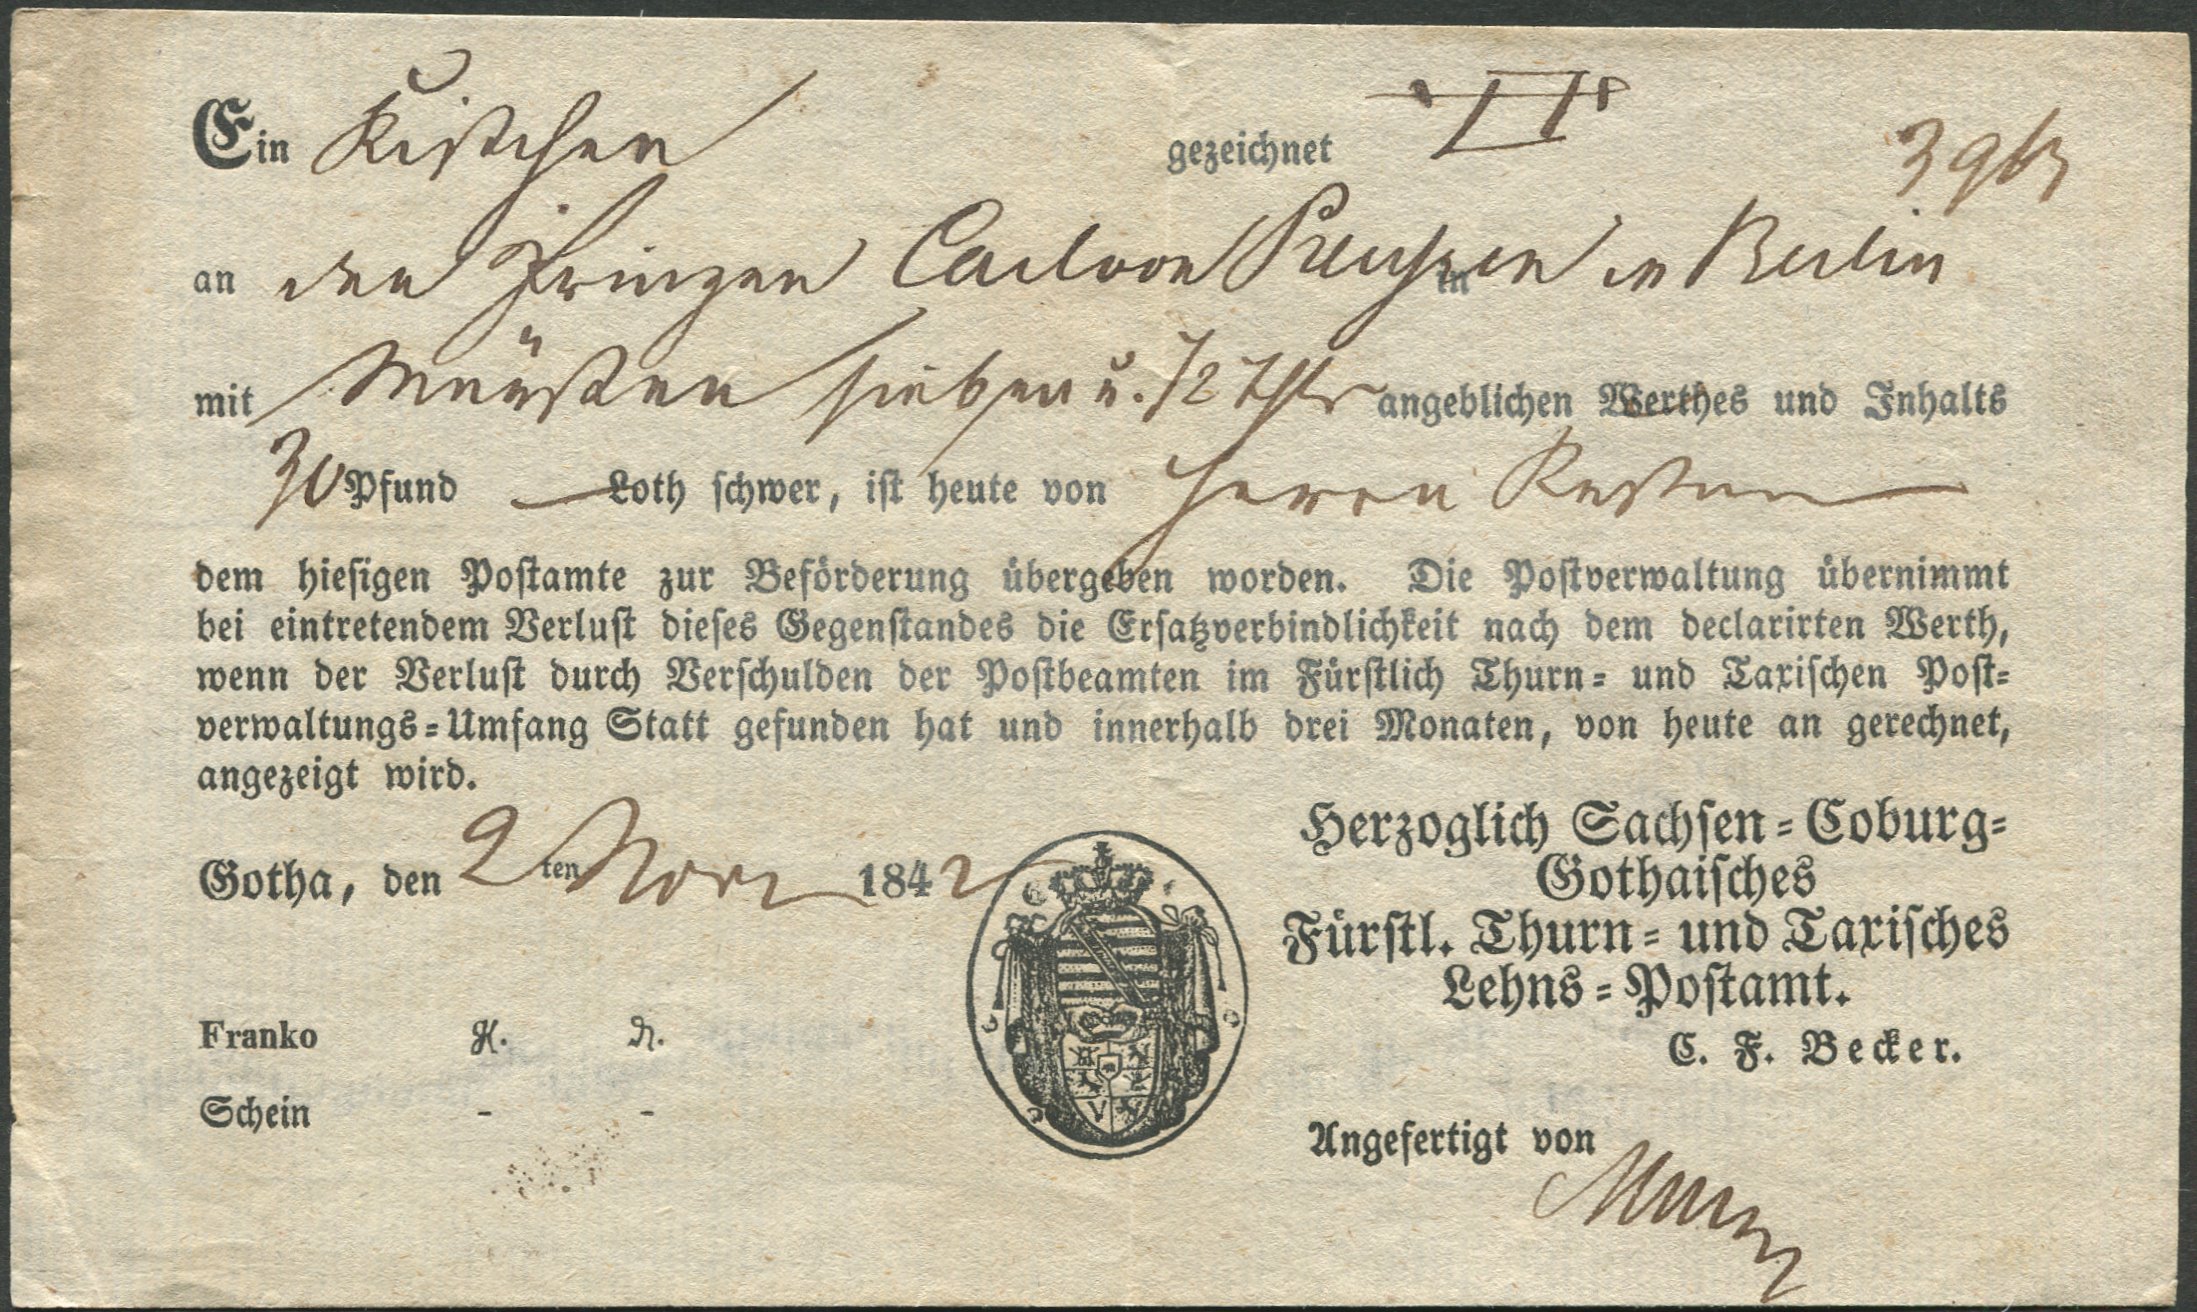 Ein Kistchen gezeichnet II
3 gls
an den Prinzen Carl von Preußen in in Berlin
mit Würsten sieben u. 1/2 Thlr angeblichen Werthes und Inhalts
30 Pfund — Loth schwer, ist heute von Herrn
dem hiesigen Postamte zur Beförderung übergeben worden. Die Postverwaltung übernimmt
bei eintretendem Verlust dieses Gegenstandes die Ersatzverbindlichkeit nach dem declarirten Werth,
wenn der Verlust durch Verschulden der Postbeamten im Fürstlich Thurn- und Taxischen Post-
verwaltungs-Umfang Statt gefunden hat und innerhalb drei Monaten, von heute an gerechnet,
angezeigt wird.
Gotha, den 2ten Novr 1842
Herzoglich Sachsen-Coburg-
Gothaisches
Fürstl. Thurn- und Taxisches
Lehns-Postamt.
C. F. Becker.
Franko K. N.
Schein - -
Angefertigt von